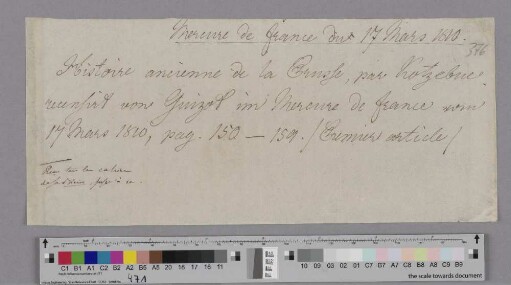 Mercure de france du 17 Mars 1810.
376
Histoire ancienne de la Prusse, par Kotzebue,
recensirt von Guizot im Mercure de france vom
17 Mars 1810, pag. 150 — 159. (Premier article)
the scale towards document
C1 B1 A1 C2 B2 A5 B5 A8 20 18 17 16 11
10 09 03 02 01 C7 B7 A7 C8 B8 A8 C9 B9
471